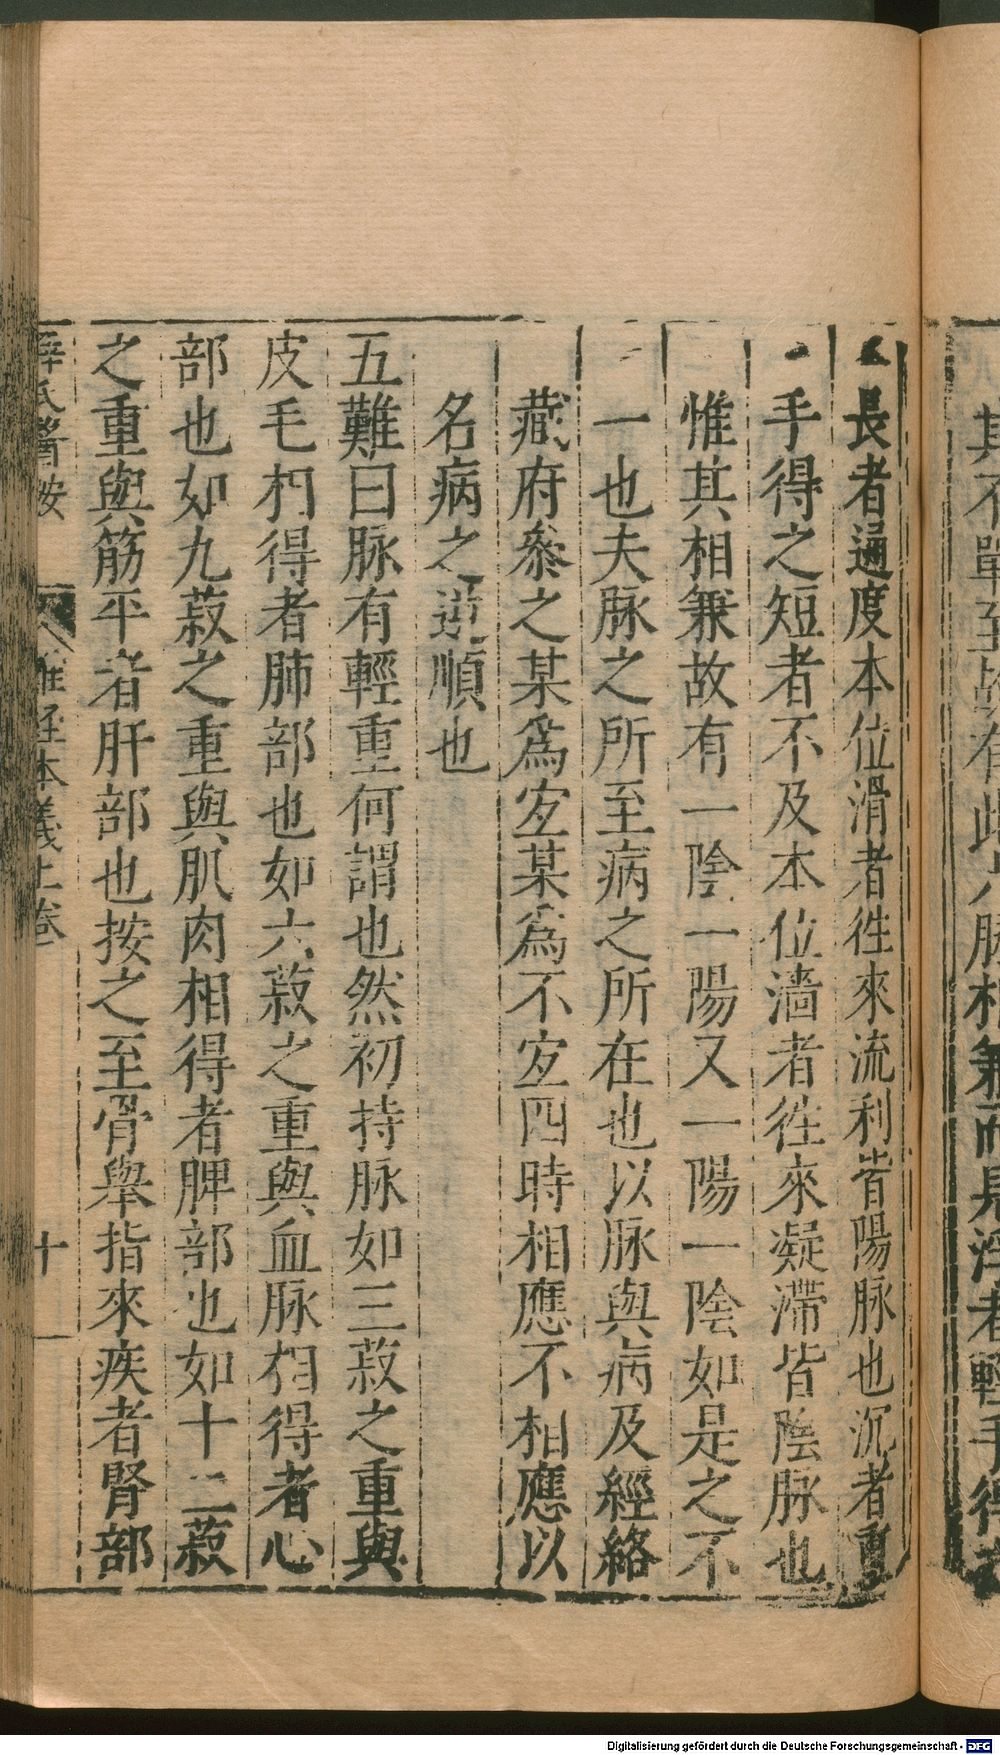 其不單至故有此六脉相兼而見浮者輕手得之
長者過度本位滑者徃來流利皆陽脉也沉者重
手得之短者不及本位濇者徃來凝滯皆陰脉也
惟其相兼故有一陰一陽又一陽一陰如是之不
一也夫脉之所至病之所在也以脉與病及經絡
藏府叅之某爲宐某爲不宐四時相應不相應以
名病之逆順也
五難曰脉有輕重何謂也然初持脉如三菽之重與
皮毛相得者肺部也如六菽之重與血脉相得者心
部也如九菽之重與肌肉相得者脾部也如十二菽
之重與筋平者肝部也按之至骨舉指來疾者腎部
薛氏醫按
難經本義上卷
十
Digitalisierung gefördert durch die Deutsche Forschungsgemeinschaft - DFG